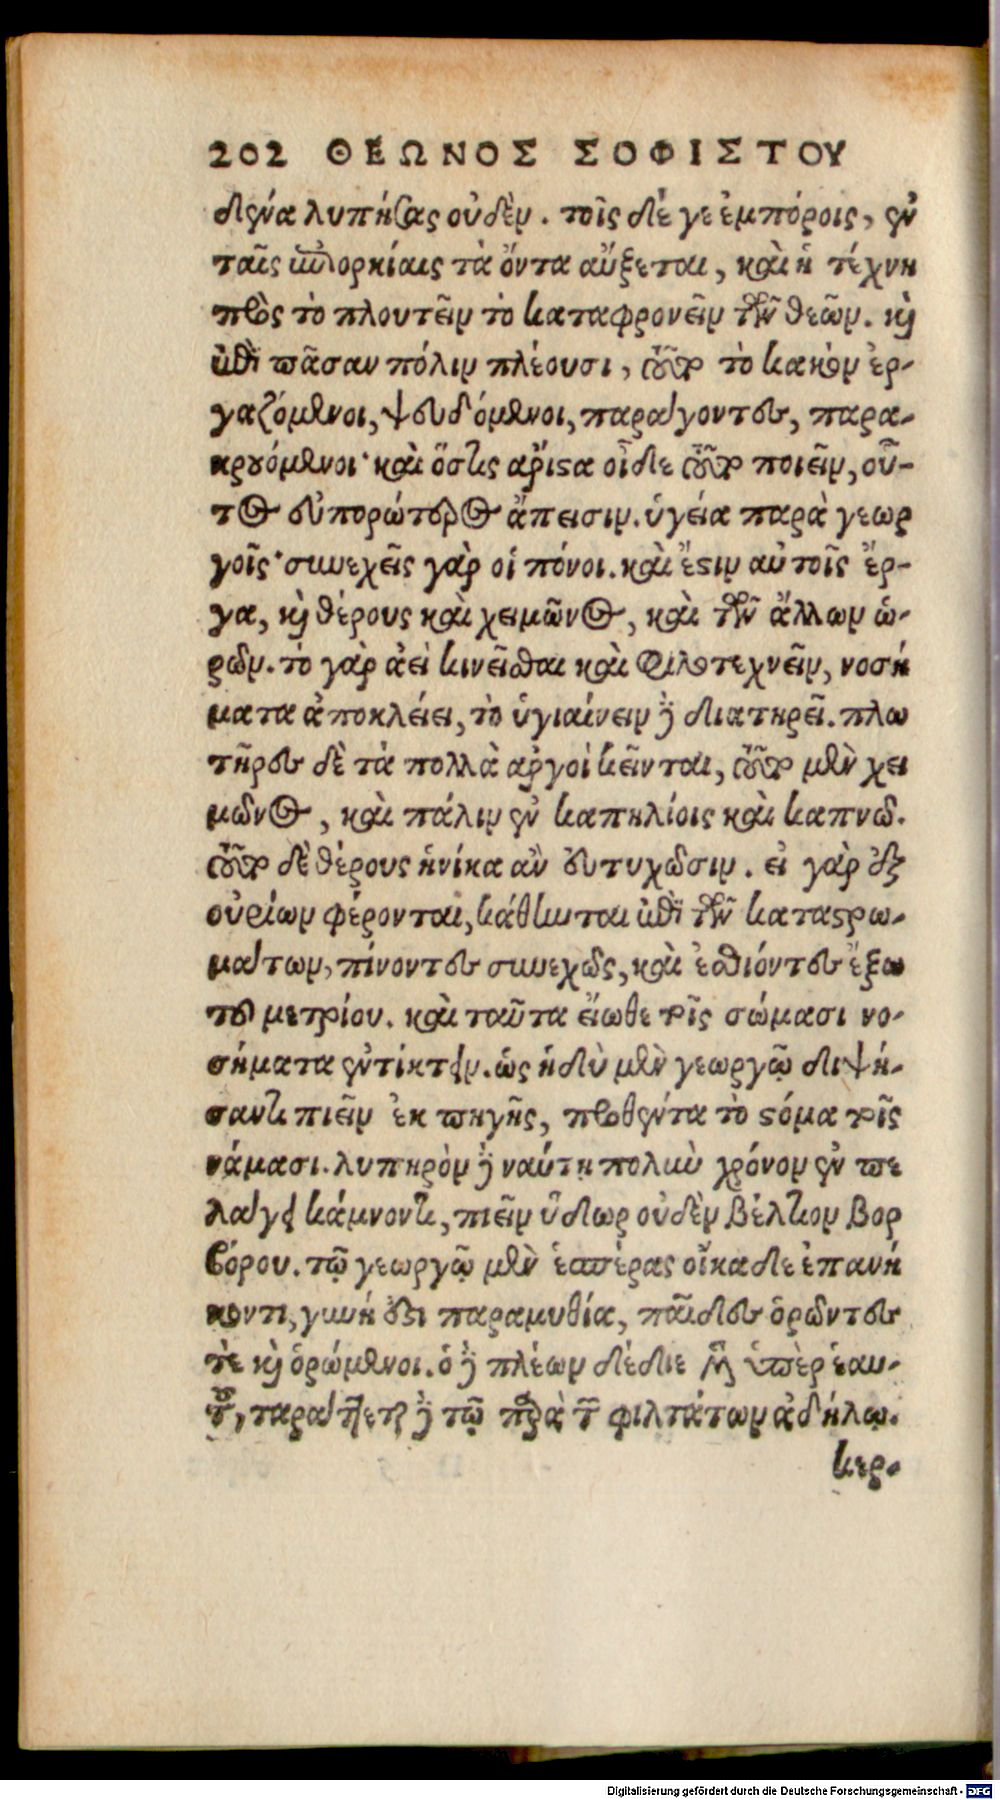 202 ΘΕΩΝΟΣ ΣΟΦΙΣΤΟΥ
δένα λυπήσας οὐδέν. τοῖς δέ γε ἐμπόροις, ἐν
ταῖς ἐπιορκίαις τὰ ὄντα αὔξεται, καὶ ἡ τέχνη
πρὸς τὸ πλουτεῖν τὸ καταφρονεῖν τῶν θεῶν. καὶ
ἐπὶ πᾶσαν πόλιν πλέουσι, τὸ κακὸν ἐρ-
γαζόμενοι, ψευδόμενοι, παράγοντες, παρα-
κρουόμενοι· καὶ ὅστις ἄριστα οἶδε ποιεῖν, οὗ-
τος εὐπορώτερος ἄπεισιν. ὑγεία παρὰ γεωρ
γοῖς· συνεχεῖς γὰρ οἱ πόνοι. καὶ ἔστιν αὐτοῖς ἔρ-
γα, καὶ θέρους καὶ χειμῶνος, καὶ τῶν ἄλλων ὡ-
ρῶν. τὸ γὰρ ἀεὶ κινεῖσθαι καὶ φιλοτεχνεῖν, νοσή
ματα ἀποκλείει, τὸ ὑγιαίνειν δὲ διατηρεῖ. πλω
τῆρες δὲ τὰ πολλὰ ἀργοὶ κεῖνται, μὲν χει
μῶνος, καὶ πάλιν ἐν καπηλίοις καὶ καπνῷ.
δὲ θέρους ἡνίκα ἂν εὐτυχῶσιν. εἰ γὰρ ἐξ
οὐρίων φέρονται, κάθηνται ἐπὶ τῶν καταστρω-
μάτων, πίνοντες συνεχῶς, καὶ ἐσθιόντες ἔξω
τοῦ μετρίου. καὶ ταῦτα εἴωθε τοῖς σώμασι νο-
σήματα ἐντίκτειν. ὡς ἡδὺ μὲν γεωργῷ διψή-
σαντι πιεῖν ἐκ πηγῆς, προθέντα τὸ στόμα τοῖς
νάμασι. λυπηρὸν δὲ ναύτῃ πολὺν χρόνον ἐν πε
λάγει κάμνοντι, πιεῖν ὕδωρ οὐδὲν βέλτιον βορ
βόρου. τῷ γεωργῷ μὲν ἑσπέρας οἴκαδε ἐπανή
κοντι, γυνή ἐστι παραμυθία, παῖδες ὁρῶντες
τε καὶ ὁρώμενοι. ὁ δὲ πλέων δέδιε μὲν ὑπὲρ ἑαυ-
τοῦ, ταράττεται δὲ τῷ περὶ τῶν φιλτάτων ἀδήλῳ.
κερ-
Digitalisierung gefördert durch die Deutsche Forschungsgemeinschaft - DFG